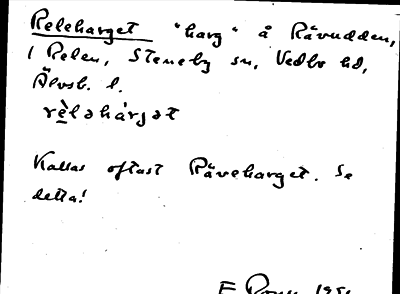 Releharget "harg" å Rävudden,
i Relen, Steneby sn, Vedbo hd,
Älvsb. l.
rèləhárjət
Kallas oftast Räveharget. Se
detta!
E